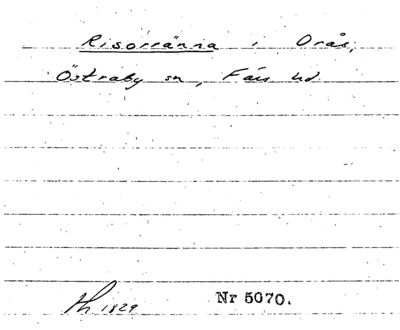 Risorränna i Orås,
Östraby sn, Färs hd
Ah 1829 Nr 5070.